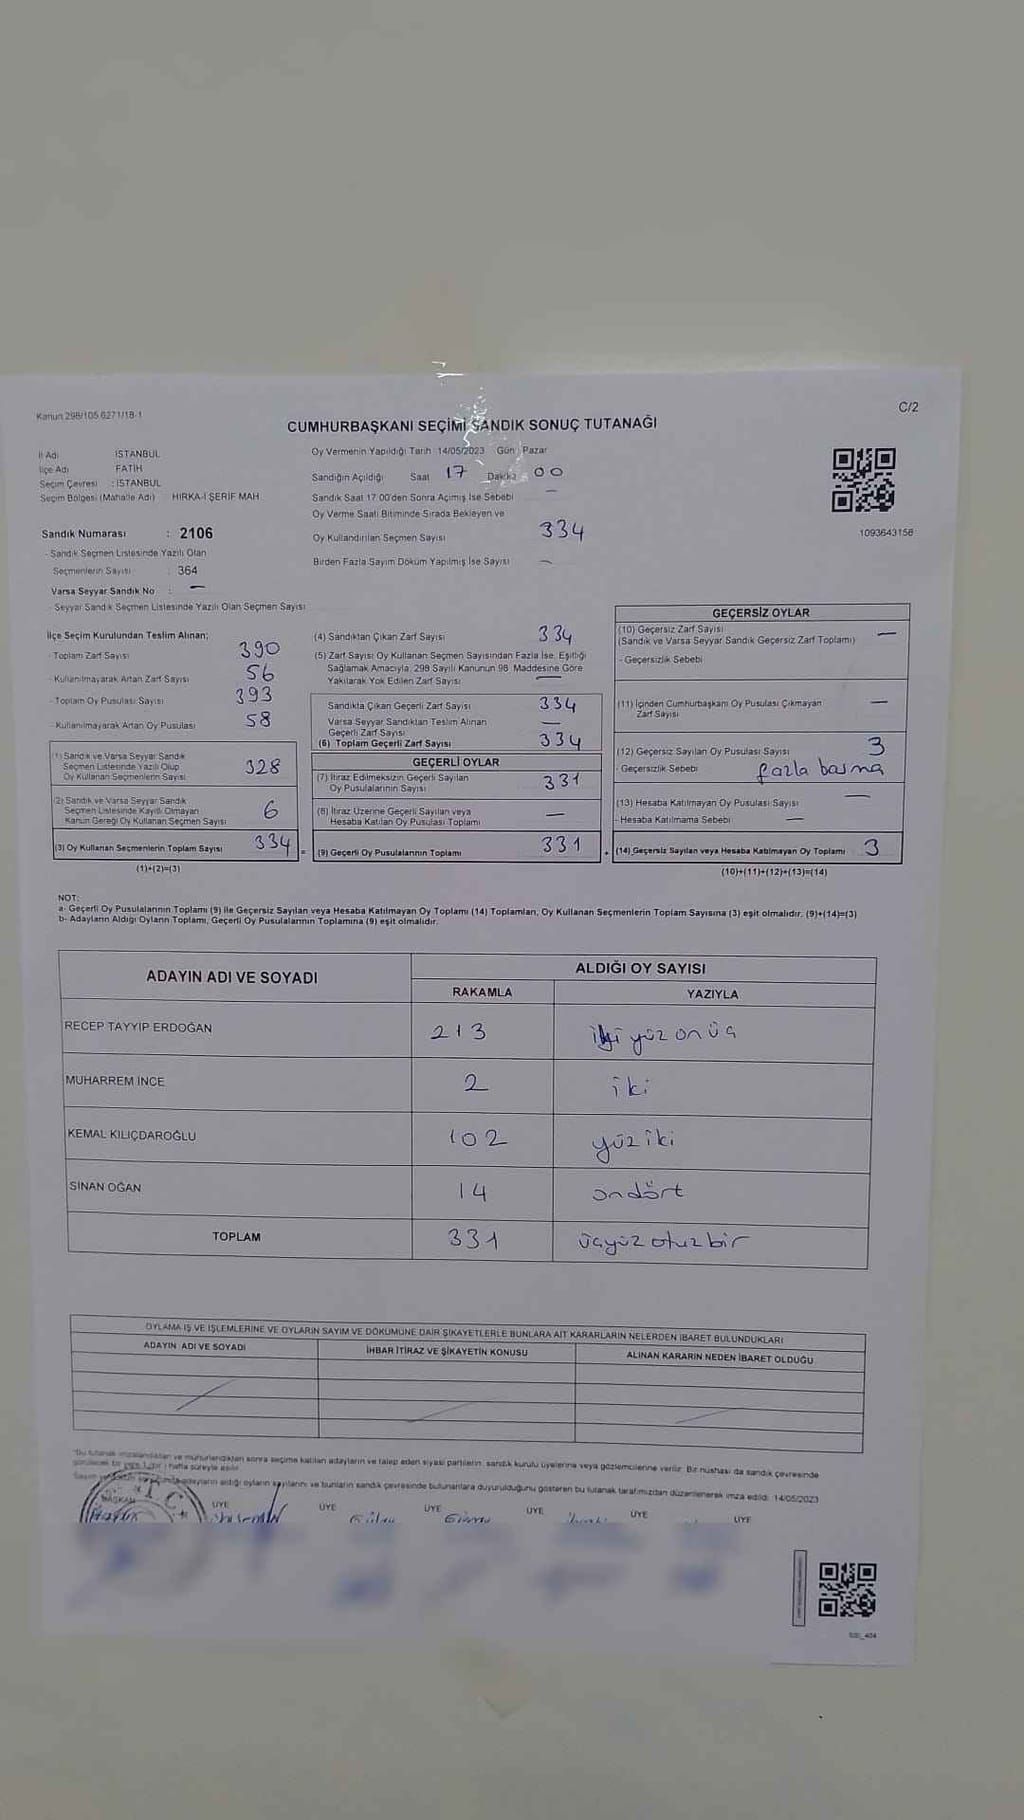 Kanun 298/105 6271/18-1
C/2
CUMHURBAŞKANI SEÇİMİ SANDIK SONUÇ TUTANAĞI
İl Adı İSTANBUL
İlçe Adı FATİH
Seçim Çevresi : İSTANBUL
Seçim Bölgesi (Mahalle Adı) HIRKA-İ ŞERİF MAH.
Oy Vermenin Yapıldığı Tarih 14/05/2023 Gün Pazar
Sandığın Açıldığı Saat 17 Dakika 00
Sandık Saat 17 00'den Sonra Açımış İse Sebebi —
Oy Verme Saati Bitiminde Sırada Bekleyen ve
Oy Kullandırılan Seçmen Sayısı 334
Birden Fazla Sayım Döküm Yapılmış İse Sayısı —
1093643156
Sandık Numarası : 2106
- Sandık Seçmen Listesinde Yazılı Olan
Seçmenlerin Sayısı : 364
Varsa Seyyar Sandık No : —
- Seyyar Sandık Seçmen Listesinde Yazılı Olan Seçmen Sayısı
İlçe Seçim Kurulundan Teslim Alınan;
- Toplam Zarf Sayısı 390
- Kullanılmayarak Artan Zarf Sayısı 56
- Toplam Oy Pusulası Sayısı 393
- Kullanılmayarak Artan Oy Pusulası 58
(1) Sandık ve Varsa Seyyar Sandık
Seçmen Listesinde Yazılı Olup
Oy Kullanan Seçmenlerin Sayısı 328
(2) Sandık ve Varsa Seyyar Sandık
Seçmen Listesinde Kayıtlı Olmayan
Kanun Gereği Oy Kullanan Seçmen Sayısı 6
(3) Oy Kullanan Seçmenlerin Toplam Sayısı 334
(1)+(2)=(3)
(4) Sandıktan Çıkan Zarf Sayısı 334
(5) Zarf Sayısı Oy Kullanan Seçmen Sayısından Fazla İse, Eşitliği
Sağlamak Amacıyla, 298 Sayılı Kanunun 98. Maddesine Göre
Yakılarak Yok Edilen Zarf Sayısı —
Sandıkta Çıkan Geçerli Zarf Sayısı 334
Varsa Seyyar Sandıktan Teslim Alınan
Geçerli Zarf Sayısı —
(6) Toplam Geçerli Zarf Sayısı 334
GEÇERLİ OYLAR
(7) İtiraz Edilmeksizin Geçerli Sayılan
Oy Pusulalarının Sayısı 331
(8) İtiraz Üzerine Geçerli Sayılan veya
Hesaba Katılan Oy Pusulası Toplamı —
= (9) Geçerli Oy Pusulalarının Toplamı 331
GEÇERSİZ OYLAR
(10) Geçersiz Zarf Sayısı —
(Sandık ve Varsa Seyyar Sandık Geçersiz Zarf Toplamı)
- Geçersizlik Sebebi
(11) İçinden Cumhurbaşkanı Oy Pusulası Çıkmayan
Zarf Sayısı —
(12) Geçersiz Sayılan Oy Pusulası Sayısı 3
- Geçersizlik Sebebi fazla basma
(13) Hesaba Katılmayan Oy Pusulası Sayısı —
- Hesaba Katılmama Sebebi —
+ (14) Geçersiz Sayılan veya Hesaba Katılmayan Oy Toplamı 3
(10)+(11)+(12)+(13)=(14)
NOT:
a- Geçerli Oy Pusulalarının Toplamı (9) ile Geçersiz Sayılan veya Hesaba Katılmayan Oy Toplamı (14) Toplamları, Oy Kullanan Seçmenlerin Toplam Sayısına (3) eşit olmalıdır. (9)+(14)=(3)
b- Adayların Aldığı Oyların Toplamı, Geçerli Oy Pusulalarının Toplamına (9) eşit olmalıdır.
ADAYIN ADI VE SOYADI ALDIĞI OY SAYISI
RAKAMLA YAZIYLA
RECEP TAYYİP ERDOĞAN 213 iki yüz onüç
MUHARREM İNCE 2 iki
KEMAL KILIÇDAROĞLU 102 yüz iki
SİNAN OĞAN 14 ondört
TOPLAM 331 üçyüz otuz bir
OYLAMA İŞ VE İŞLEMLERİNE VE OYLARIN SAYIM VE DÖKÜMÜNE DAİR ŞİKAYETLERLE BUNLARA AİT KARARLARIN NELERDEN İBARET BULUNDUKLARI
ADAYIN ADI VE SOYADI İHBAR İTİRAZ VE ŞİKAYETİN KONUSU ALINAN KARARIN NEDEN İBARET OLDUĞU
"Bu tutanak imzalandıktan ve mühürlendikten sonra seçime katılan adayların ve talep eden siyasi partilerin, sandık kurulu üyelerine veya gözlemcilerine verilir. Bir nüshası da sandık çevresinde
görülecek bir yere 1 (bir) hafta süreyle asılır.
adayların aldığı oyların sayılarını ve bunların sandık çevresinde bulunanlara duyurulduğunu gösteren bu tutanak tarafımızdan düzenlenerek imza edildi. 14/05/2023
BAŞKAN T.C. ÜYE ÜYE ÜYE ÜYE ÜYE ÜYE